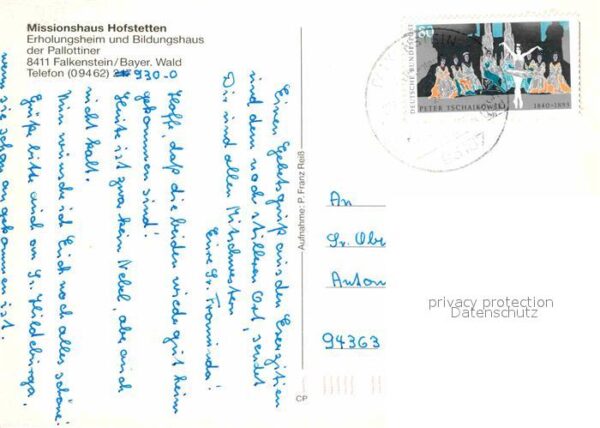 Missionshaus Hofstetten
Erholungsheim und Bildungshaus
der Pallottiner
8411 Falkenstein/Bayer. Wald
Telefon (09462)
930-0
80
DEUTSCHE BUNDESPOST
PETER TSCHAIKOWSKY 1840-1893
Einen Gebetsgruß aus den Exerzitien
und dem noch stilleren Ort, sendet
Dir und allen Mitschwestern
Eure Sr.
Hoffe, daß die beiden wieder gut heim
gekommen sind!
Heute ist zwar kein Nebel, aber auch
nicht kalt.
Nun wünsche ich Euch noch alles Schöne!
Grüße bitte auch an Sr. Hildebirga,
wenn sie schon angekommen ist.
Aufnahme: P. Franz Reiß
An
Sr. Obe
Anton
94363
privacy protection
Datenschutz
CP